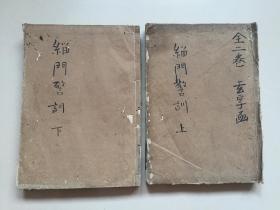 全二卷 玄字函
緇門警訓 上
緇門警訓 下